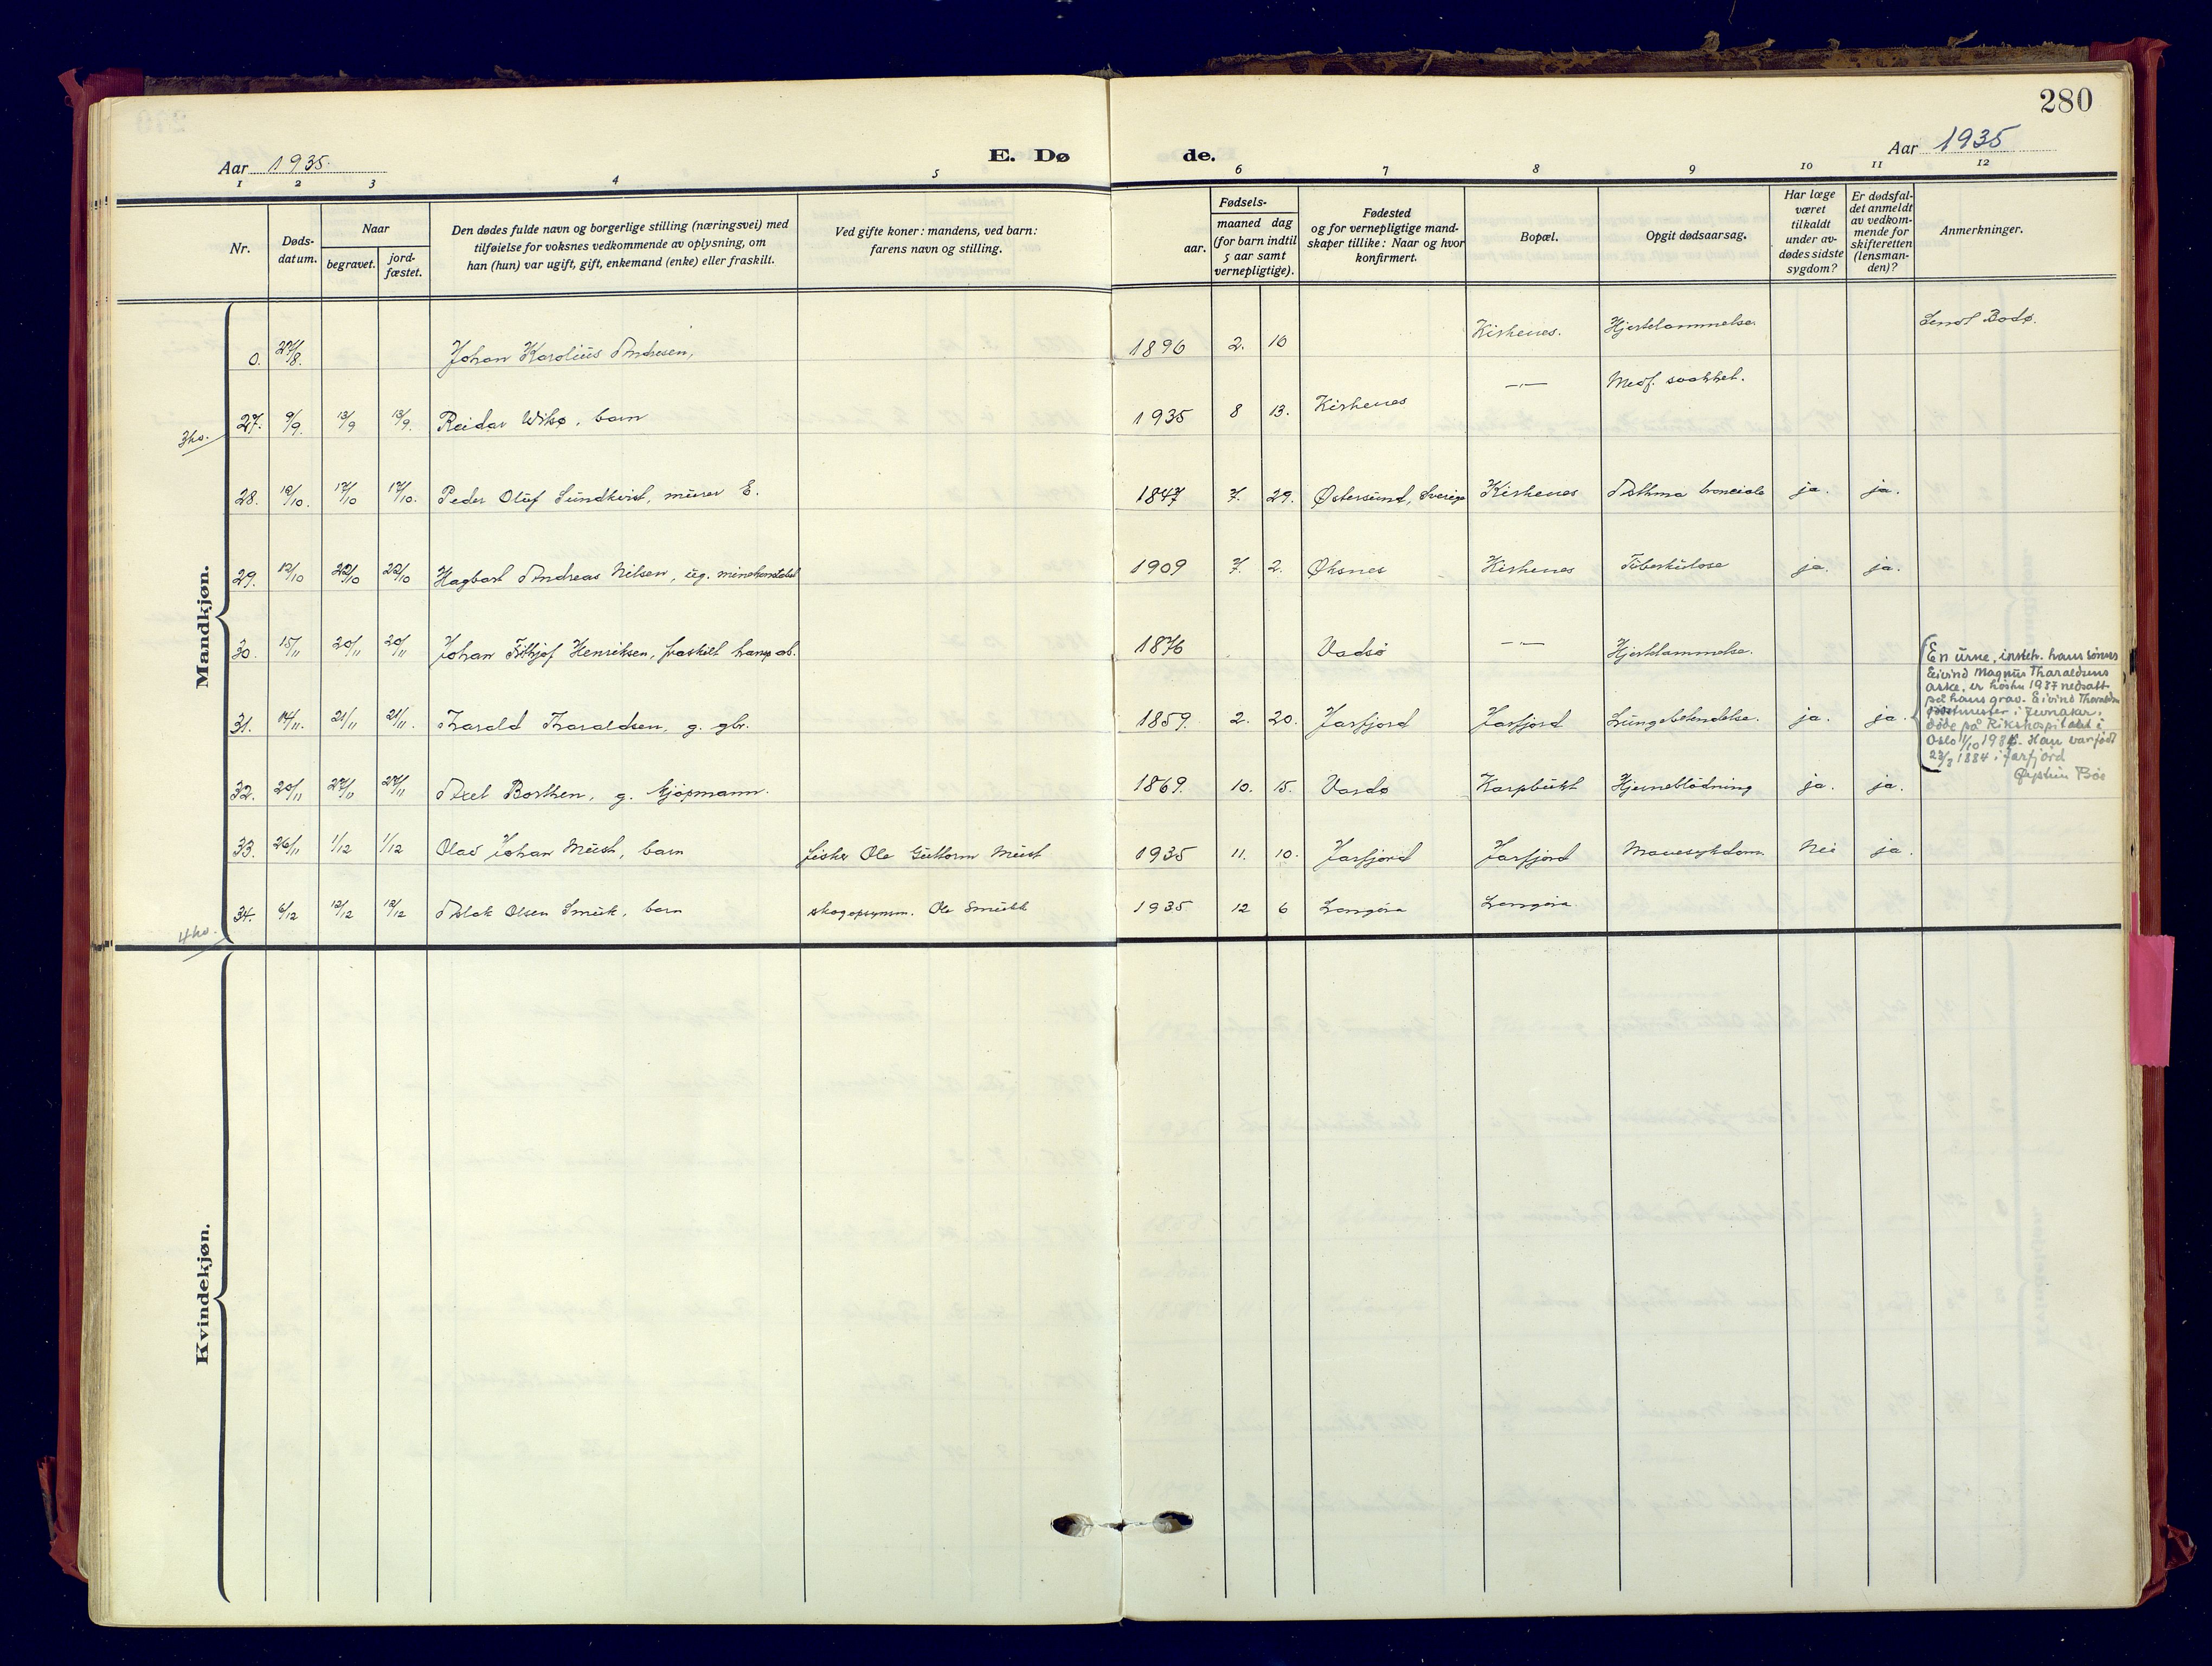 280
Aar 1935.
E. Dø de.
Aar 1935
1 2 3 4 5 6 7 8 9 10 11 12
Nr.
Døds-
datum.
Naar
begravet.
jord-
fæstet.
Den dødes fulde navn og borgerlige stilling (næringsvei) med
tilføielse for voksnes vedkommende av oplysning, om
han (hun) var ugift, gift, enkemand (enke) eller fraskilt.
Ved gifte koner: mandens, ved barn:
farens navn og stilling.
Fødsels-
aar.
maaned dag
(for barn indtil
5 aar samt
vernepligtige).
Fødested
og for vernepligtige mand-
skaper tillike: Naar og hvor
konfirmert.
Bopæl.
Opgit dødsaarsag.
Har læge
været
tilkaldt
under av-
dødes sidste
sygdom?
Er dødsfal-
det anmeldt
av vedkom-
mende for
skifteretten
(lensman-
den)?
Anmerkninger.
Mandkjøn.
0. 27/8. Johan Karolius Andresen, 1896 2. 16 Kirkenes. Hjertelammelse. Sendt Bodø.
3ko.
27. 9/9. 13/9 13/9. Reidar Wikø, barn 1935 8 13. Kirkenes —„— Medf. svakhet.
28. 10/10. 17/10 17/10. Peder Oluf Sundkvist, murer E. 1847 7. 29. Østersund, Sverige Kirkenes Asthma bronciale ja. ja.
29. 12/10 22/10 22/10 Hagbart Andreas Nilsen, ug. minekonstabel 1909 7. 2. Øksnes Kirkenes Tuberkulose ja. ja.
30. 15/11 20/11 20/11 Johan Fritjof Henriksen, fraskilt havnearb. 1876 Vadsö —„— Hjertelammelse.
31. 14/11. 21/11 21/11. Harald Haraldsen, g. gbr. 1859. 2. 20. Jarfjord Jarfjord Lungebetendelse. ja. ja.
En urne, inneh. hans sönns
Eivind Magnus Tharaldsens
aske, er hösten 1937 nedsatt
på hans grav. Eivind Tharaldsen
postmester i Jevnaker.
döde på Rikshospitalet i
Oslo 1/10 1936. Han var født
23/3 1884 i Jarfjord
Øystein Böe
32. 20/11 27/11 27/11 Axel Borthen, g. kjöpmann. 1869. 10. 15. Vardø Karpbukt Hjerneblödning ja. ja.
33. 26/11 1/12 1/12 Olav Johan Must, barn fisker Ole Guttorm Must 1935 11. 10. Jarfjord Jarfjord Mavesykdom. Nei ja.
34. 6/12 12/12 12/12 Aslak Olsen Smuk, barn skogopsynsm. Ole Smukk 1935 12 6 Langöra Langöra.
4 ko.
Kvindekjøn.